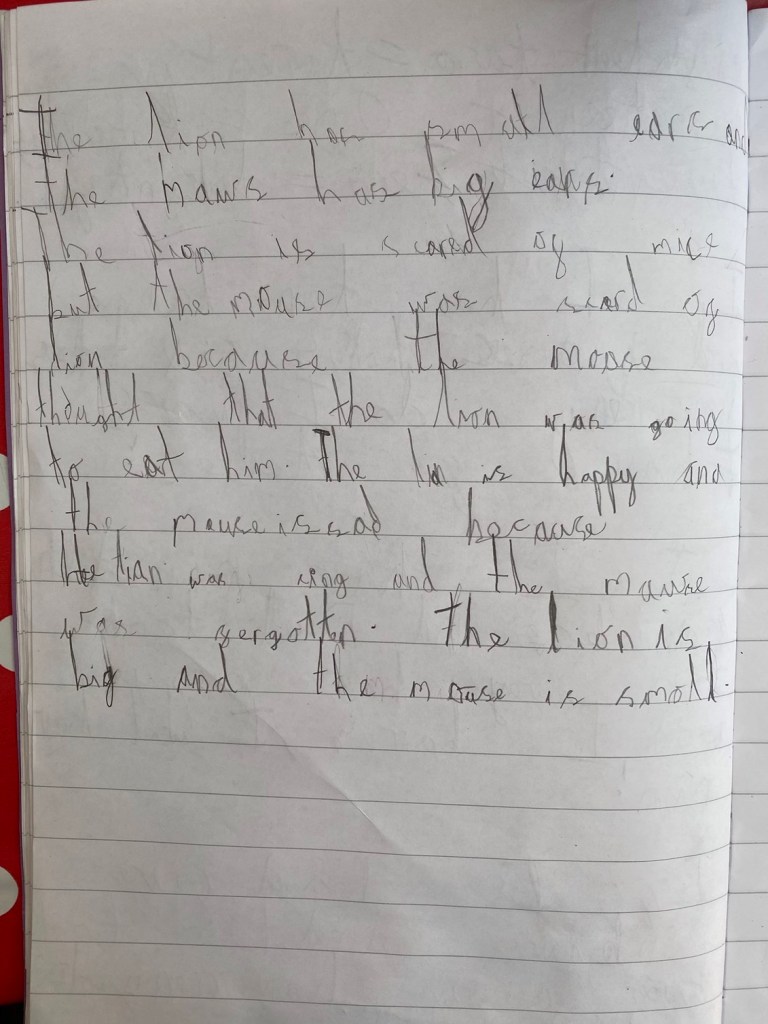 The lion has small ears and
the maws has big ears.
The lion is scared of mice
but the mouse was scard of
lion because the mouse
thought that the lion was going
to eat him. The lion is happy and
the mouse is sad because
the lian was and the mause
was forgotten. The lion is
big and the mouse is smoll.